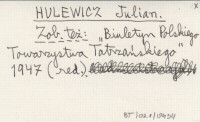 HULEWICZ Julian.
Zob. też: „Biuletyn Polskiego
Towarzystwa Tatrzańskiego"
1947 (red.)